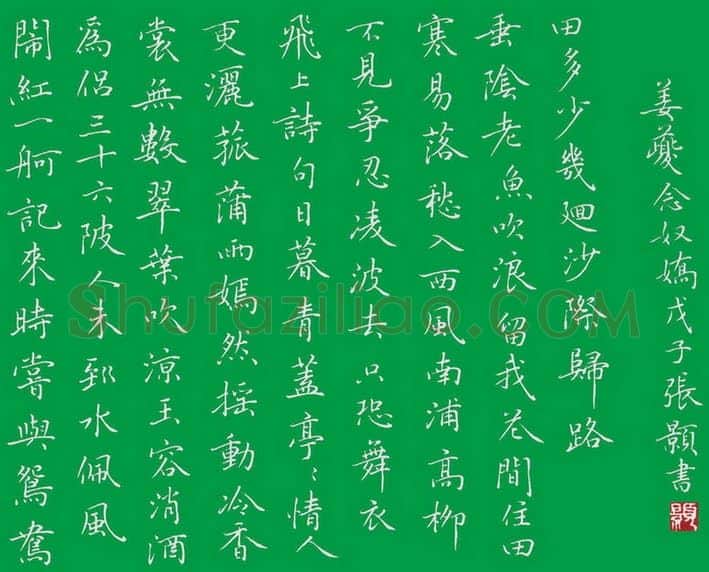 鬧紅一舸記來時嘗與鴛鴦
爲侶三十六陂人未到水佩風
裳無數翠葉吹涼玉容消酒
更灑菰蒲雨嫣然摇動冷香
飛上詩句日暮青蓋亭〻情人
不見爭忍凌波去只恐舞衣
寒易落愁入西風南浦高柳
垂陰老魚吹浪留我花間住田
田多少幾迴沙際歸路
姜夔念奴嬌戊子張顥書
Shufaziliao.com